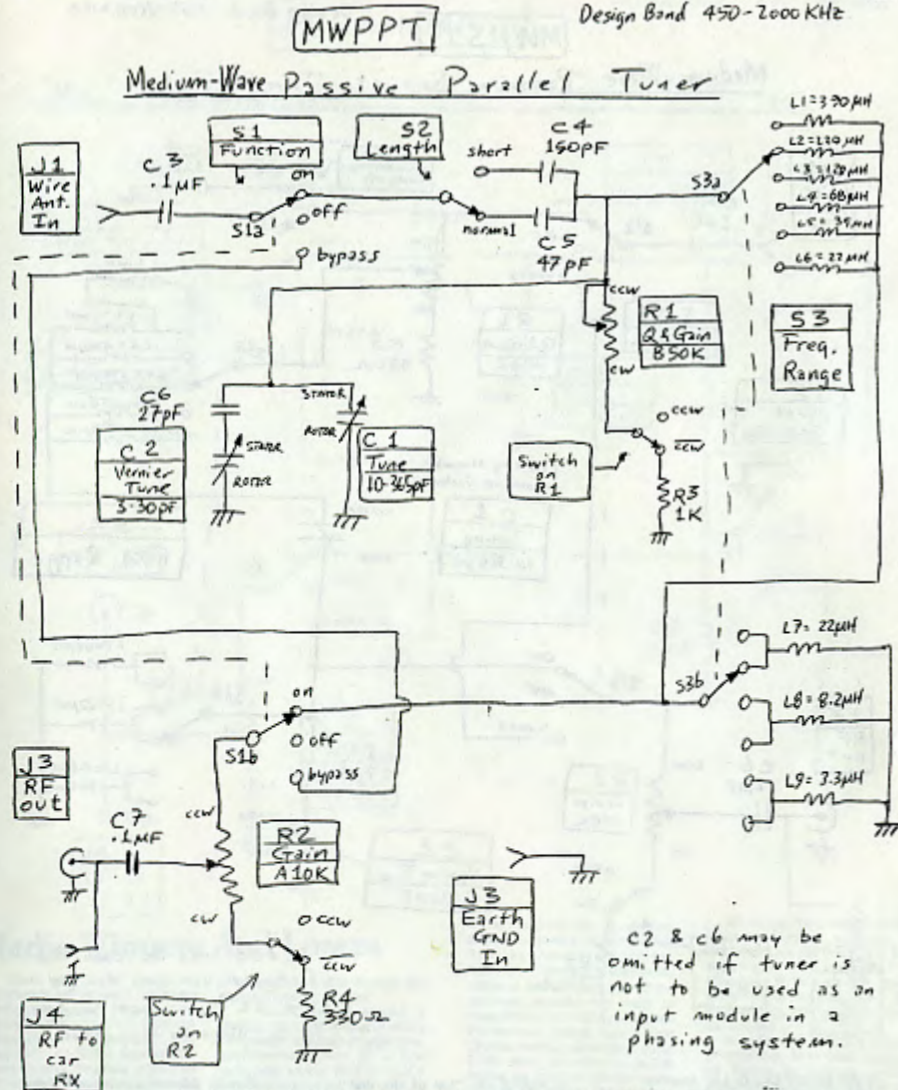 MWPPT
Design Band 450-2000 KHz
Medium-Wave Passive Parallel Tuner
J1
Wire
Ant.
In
C3
.1MF
S1
Function
on
S1a
off
bypass
S2
Length
short
normal
C4
150pF
C5
47pF
S3a
L1=390μH
L2=220μH
L3=120μH
L4=68μH
L5=39μH
L6=22μH
S3
Freq.
Range
ccw
R1
Q&Gain
B50K
cw
ccw
ccw
Switch
on
R1
R3
1K
C6
27pF
C2
Vernier
Tune
3-30pF
STATOR
ROTOR
STATOR
ROTOR
C1
Tune
10-365pF
S3b
L7=22μH
L8=8.2μH
L9=3.3μH
on
S1b
off
bypass
J3
RF
out
C7
.1MF
ccw
R2
Gain
A10K
cw
ccw
ccw
Switch
on
R2
R4
330Ω
J4
RF to
car
RX
J3
Earth
GND
In
C2 & C6 may be
omitted if tuner is
not to be used as an
input module in a
phasing system.